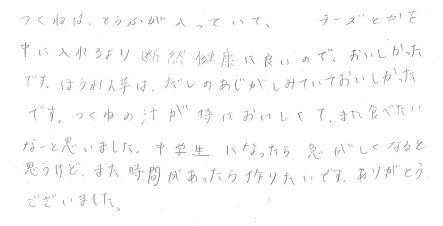 つくねは、とうふが入っていて、 チーズとかを
中に入れるより断然健康に良いので、おいしかった
です。ほうれん草は、だしのあじがしみていておいしかった
です。つくねの汁が特においしくて、また食べたい
なーと思いました。中学生になったら、急がしくなると
思うけど、また時間があったら作りたいです。ありがとう
ございました。